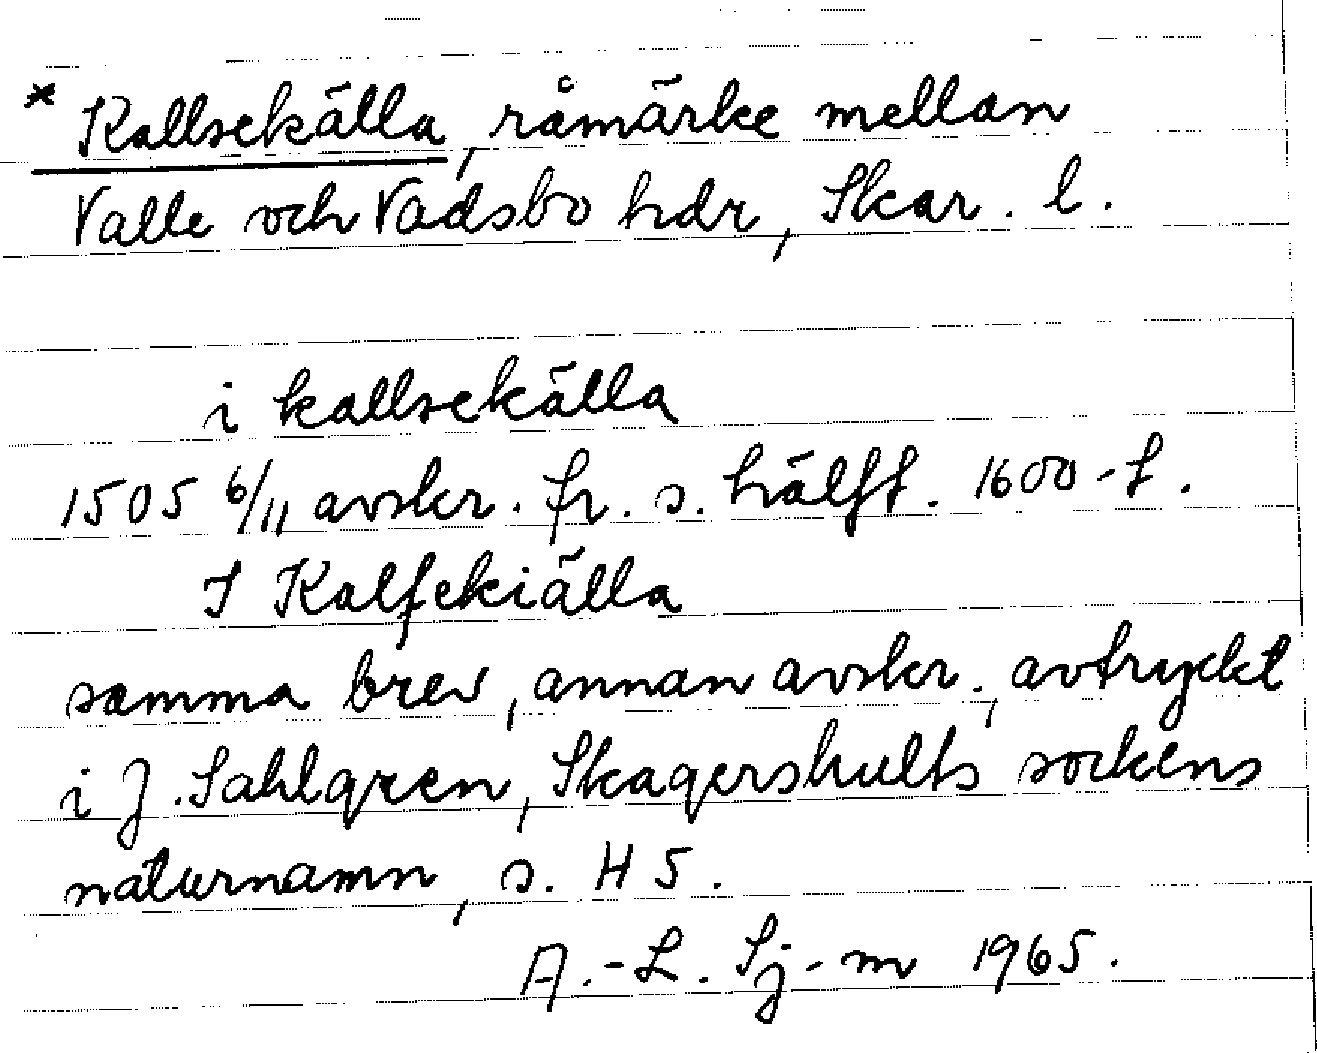 * Kallsekälla, råmärke mellan
Valle och Vadsbo hdr, Skar. l.
i kallsekälla
1505 6/11 avskr. fr. s. hälft. 1600-t.
I Kalſekiälla
samma brev, annan avskr., avtryckt
i J. Sahlgren, Skagershults sockens
naturnamn, s. H 5.
A.-L. Sj-m 1965.